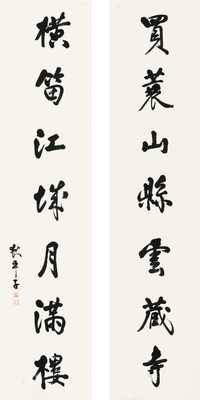 買蓑山縣雲藏寺
橫笛江城月滿樓